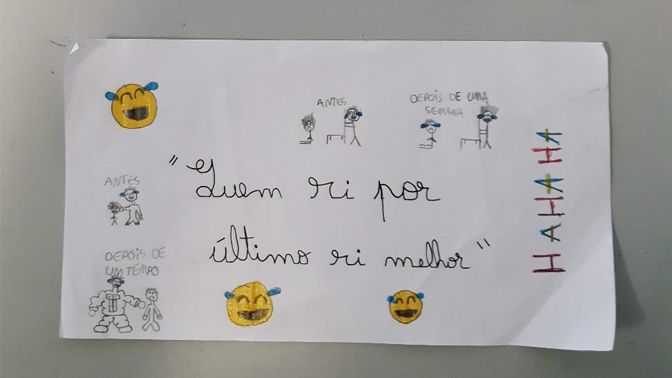 ANTES
DEPOIS DE UMA
SEMANA
ANTES
"Quem ri por
último ri melhor"
DEPOIS DE
UM TEMPO
HAHAHA